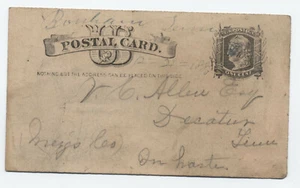 POSTAL CARD.
NOTHING BUT THE ADDRESS CAN BE PLACED ON THIS SIDE
V. C. Allen Esq
Decatur
Meigs Co Tenn
In haste